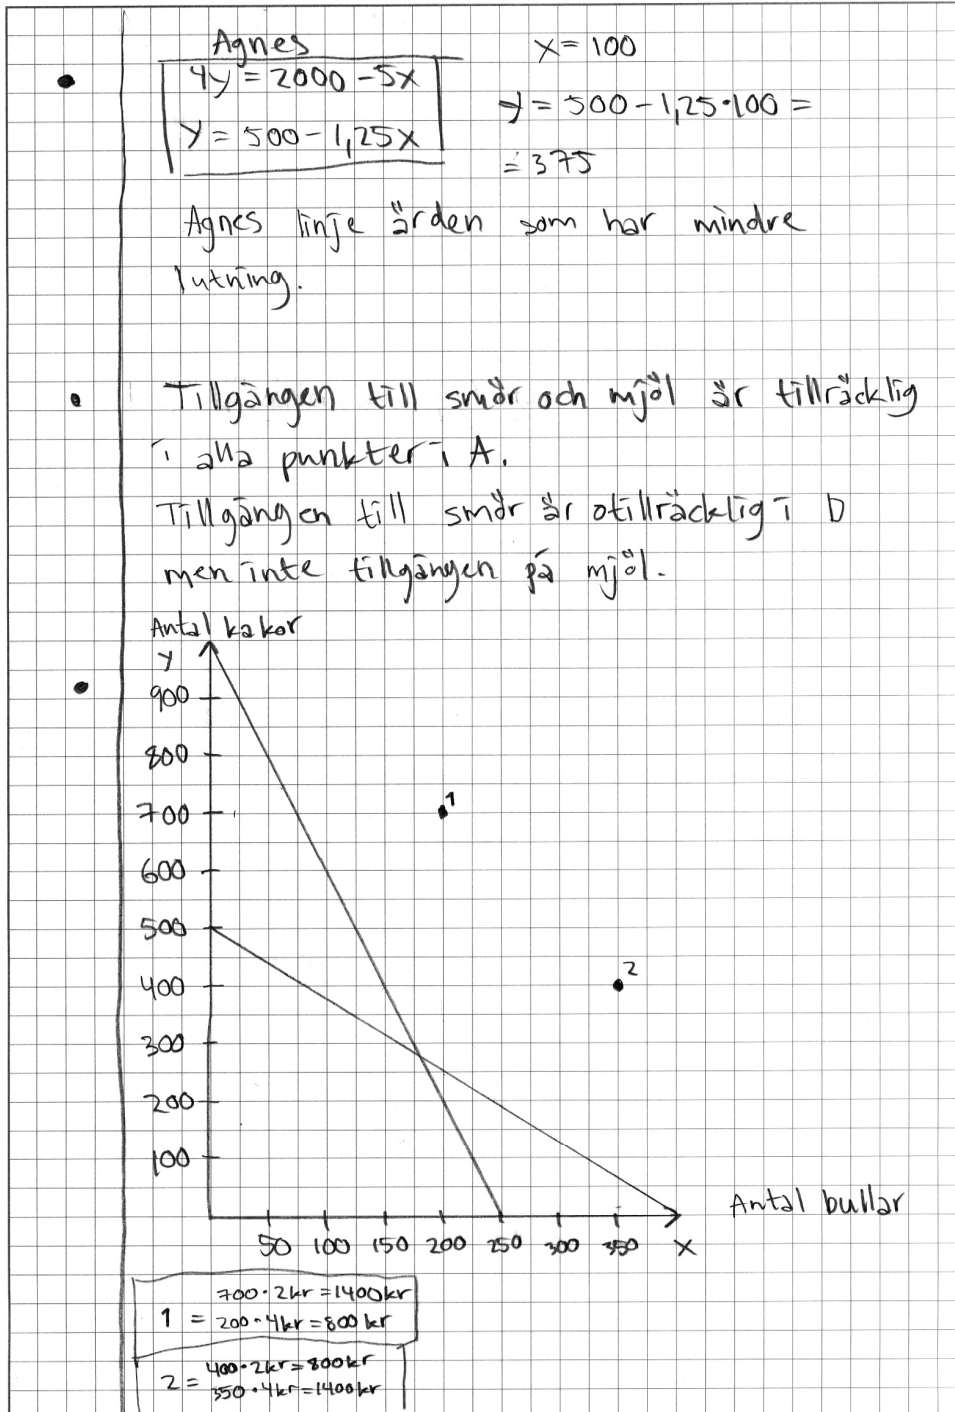 Agnes
4y = 2000 - 5x
y = 500 - 1,25x
x = 100
y = 500 - 1,25·100 =
= 375
Agnes linje är den som har mindre
lutning.
Tillgången till smör och mjöl är tillräcklig
i alla punkter i A.
Tillgången till smör är otillräcklig i D
men inte tillgången på mjöl.
Antal kakor
y
900
800
700
600
500
400
300
200
100
1
2
50 100 150 200 250 300 350 x
Antal bullar
700·2kr = 1400kr
1 = 200·4kr = 800kr
400·2kr = 800kr
2 = 350·4kr = 1400kr